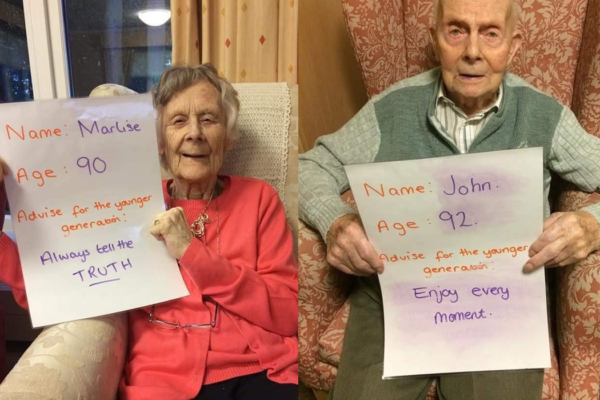 Name: Marlise
Age: 90
Advise for the younger
generation:
Always tell the
TRUTH
Name: John.
Age: 92.
Advise for the younger
generation:
Enjoy every
moment.